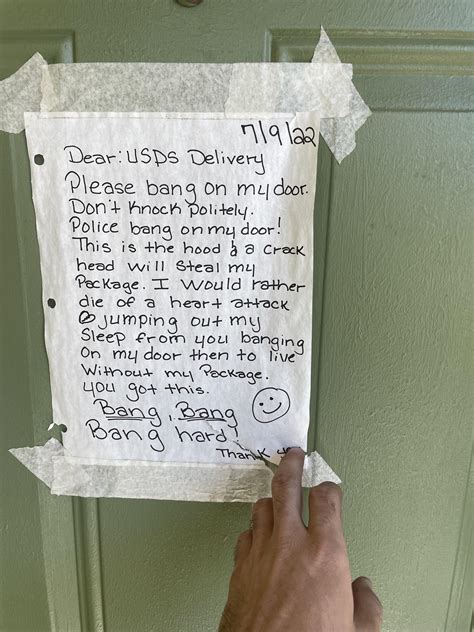 7/9/22
Dear: USPS Delivery
Please bang on my door.
Don't knock politely.
Police bang on my door!
This is the hood & a crack
head will steal my
Package. I would rather
die of a heart attack
jumping out my
Sleep from you banging
On my door then to live
Without my Package.
you got this.
Bang, Bang
Bang hard!
Thank